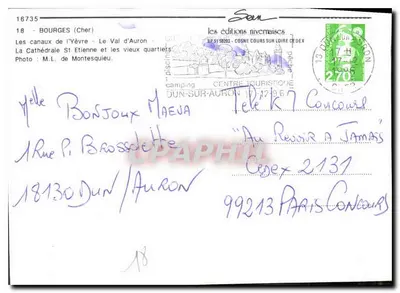 16735
18 - BOURGES (Cher)
Les canaux de l'Yèvre - Le Val d'Auron -
La Cathédrale St Etienne et les vieux quartiers
Photo : M.L. de Montesquieu.
les éditions nivernaises
COSNE COURS SUR LOIRE CEDEX
camping
CENTRE TOURISTIQUE
DUN-SUR-AURON
2,70
Melle BONJOUX MAEVA
1 Rue P. BROSSOLETTE
18130 DUN/AURON
18
TELE K7 CONCOURS
"AU REVOIR A JAMAIS"
CEDEX 2131
99213 PARIS CONCOURS